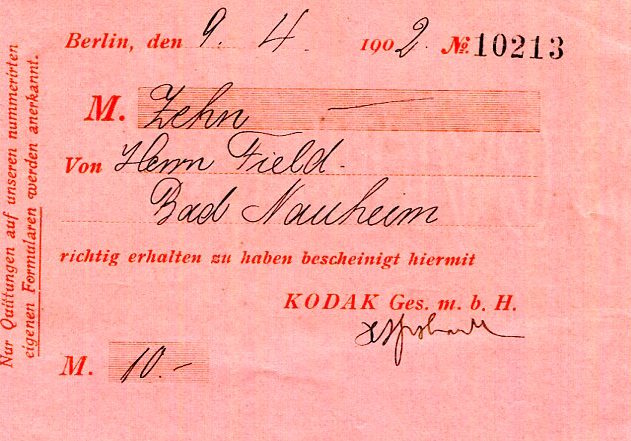 Berlin, den 9. 4. 1902. № 10213
M. Zehn —
Von Herrn Field.
Bad Nauheim
richtig erhalten zu haben bescheinigt hiermit
KODAK Ges. m. b. H.
M. 10.-
Nur Quittungen auf unseren nummerirten
eigenen Formularen werden anerkannt.